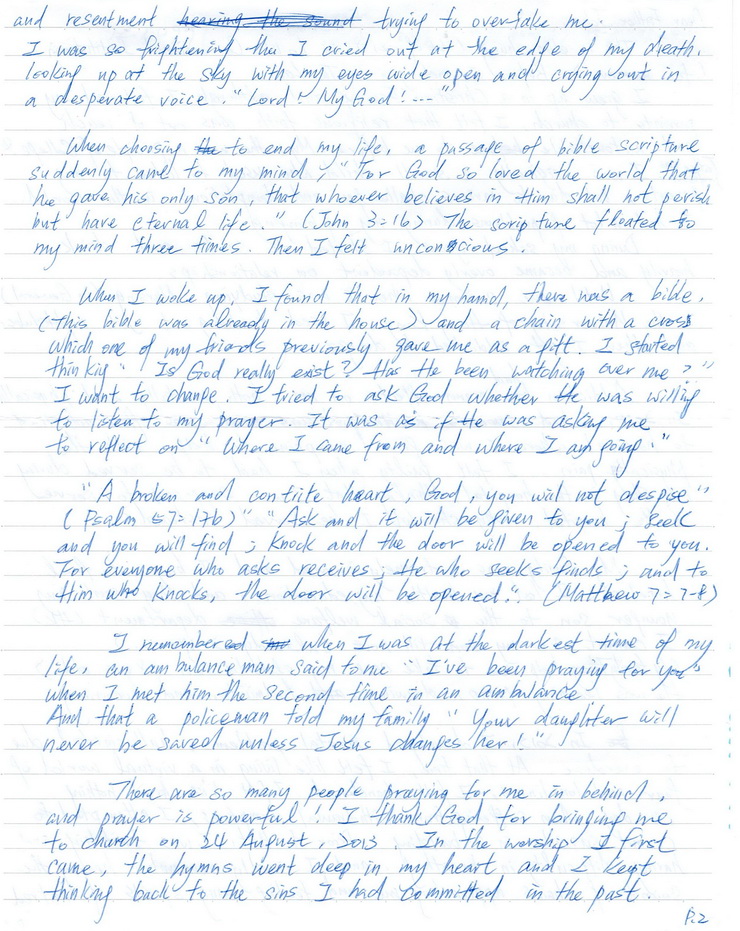 and resentment hearing the sound trying to overtake me.
I was so frightening tha I cried out at the edge of my death.
looking up at the sky with my eyes wide open and crying out in
a desperate voice. "Lord! My God! ---"
When choosing the to end my life, a passage of bible scripture
suddenly came to my mind, "For God so loved the world that
he gave his only son, that whoever believes in Him shall not perish
but have eternal life." (John 3=16) The scripture floated to
my mind three times. Then I felt unconscious.
When I woke up, I found that in my hand, there was a bible,
(this bible was already in the house) and a chain with a cross
which one of my friends previously gave me as a gift. I started
thinkig "Is God really exist? Has He been watching over me?"
I want to change. I tried to ask God whether He was willing
to listen to my prayer. It was as if He was asking me
to reflect on "Where I came from and where I am going."
"A broken and contrite heart, God, you will not despise"
(Psalm 57=17b)" "Ask and it will be given to you; seek
and you will find; knock and the door will be opened to you.
For everyone who asks receives; He who seeks finds; and to
Him who knocks, the door will be opened." (Matthew 7=7-8)
I remembered when I was at the darkest time of my
life, an ambulance man said to me "I've been praying for you"
when I met him the second time in an ambulance
And that a policeman told my family "Your daughter will
never be saved unless Jesus changes her!"
There are so many people praying for me in behind,
and prayer is powerful! I thank God for bringing me
to church on 24 August, 2013. In the worship I first
came, the hymns went deep in my heart and I kept
thinking back to the sins I had committed in the past.
P.2